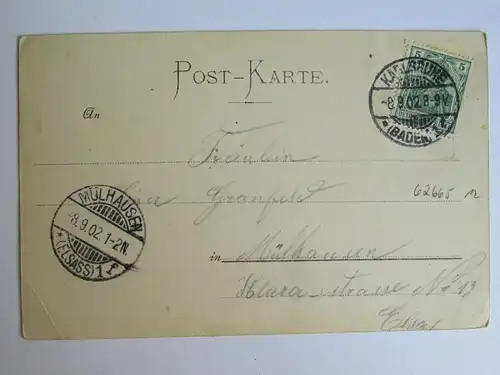 POST-KARTE.
5 5
KARLSRUHE
-8.9.02.8-9V.
* (BADEN)
An
Fräulein
Granfeld
62665
MÜLHAUSEN
-8.9.02.1-2N.
*(ELSASS)1
in Mülhausen
Klara-strasse No 13
Elsas